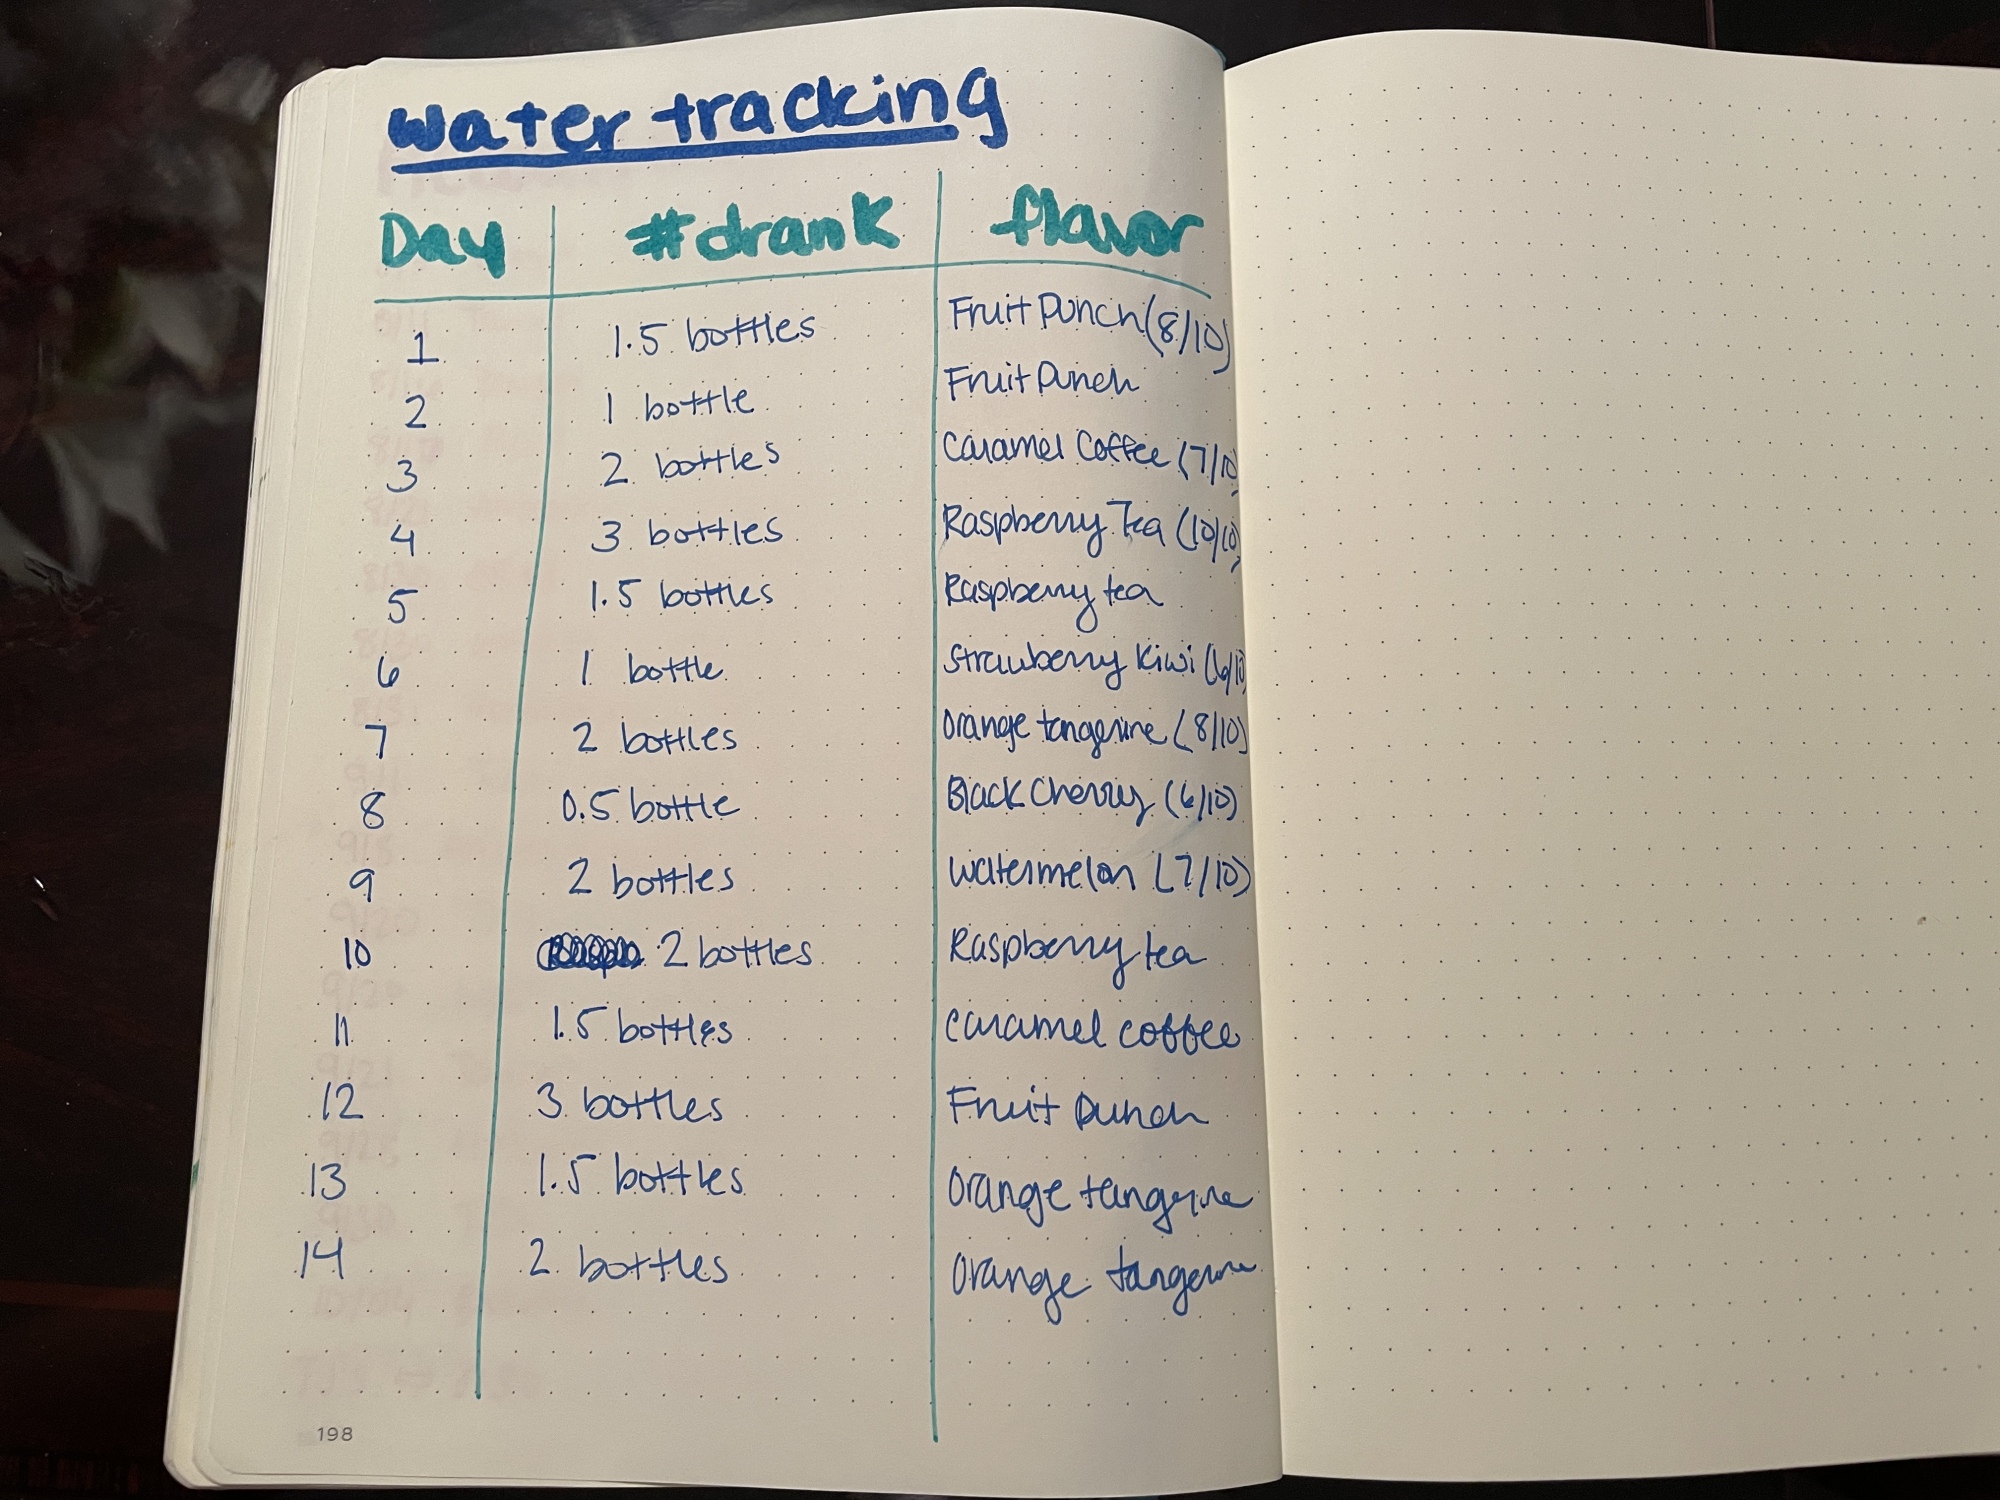 Water tracking
Day #drank flavor
1 1.5 bottles Fruit Punch (8/10)
2 1 bottle Fruit Punch
3 2 bottles Caramel Coffee (7/10)
4 3 bottles Raspberry Tea (10/10)
5 1.5 bottles Raspberry tea
6 1 bottle Strawberry Kiwi (6/10)
7 2 bottles Orange tangerine (8/10)
8 0.5 bottle Black Cherry (6/10)
9 2 bottles Watermelon (7/10)
10 2 bottles Raspberry tea
11 1.5 bottles Caramel coffee
12 3 bottles Fruit punch
13 1.5 bottles Orange tangerine
14 2 bottles Orange tangerine
198